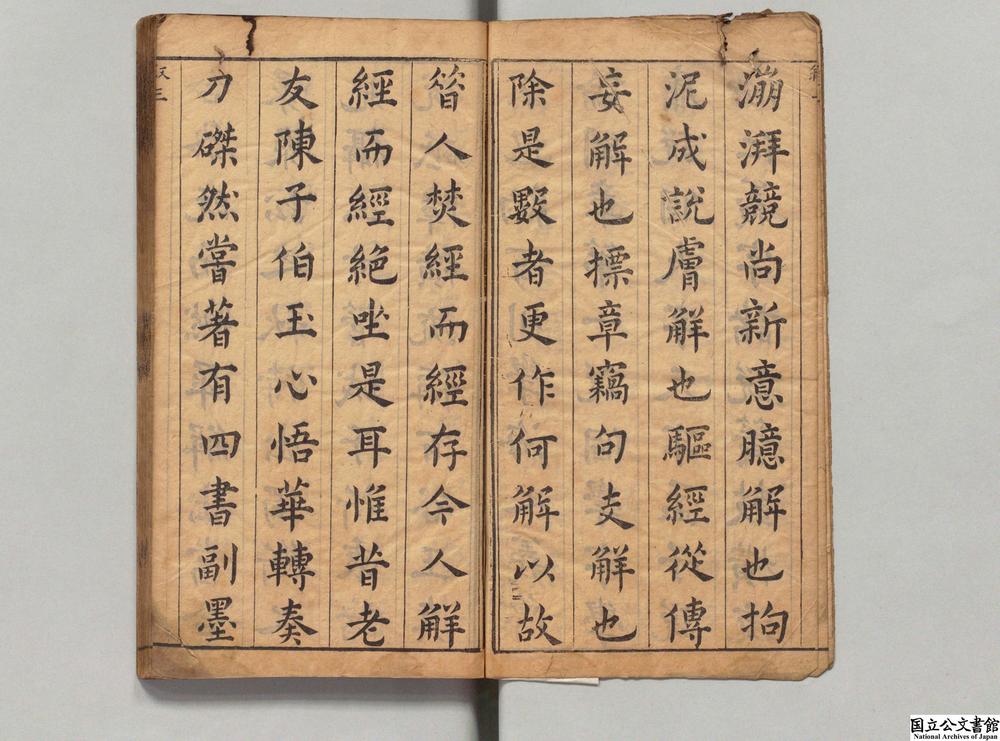 漰湃競尚新意臆解也拘
泥成說膚解也驅經從傳
妄解也摽章竊句支解也
除是數者更作何解以故
昝人焚經而經存今人解
經而經絕坐是耳惟昔老
友陳子伯玉心悟華轉奏
刀磔然嘗著有四書副墨
叙三
国立公文書館
National Archives of Japan